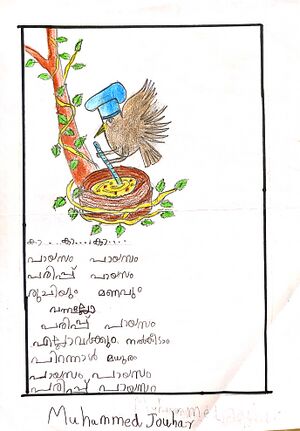 കാ... കാ... കാ....
പായസം പായസം
പരിപ്പ് പായസം
രുചിയും മണവും
വന്നല്ലോ
പരിപ്പ് പായസം
എല്ലാവർക്കും നൽകീടാം
പിറന്നാൾ മധുരം
പായസം പായസം
പരിപ്പ് പായസം
Muhammed Jouhar